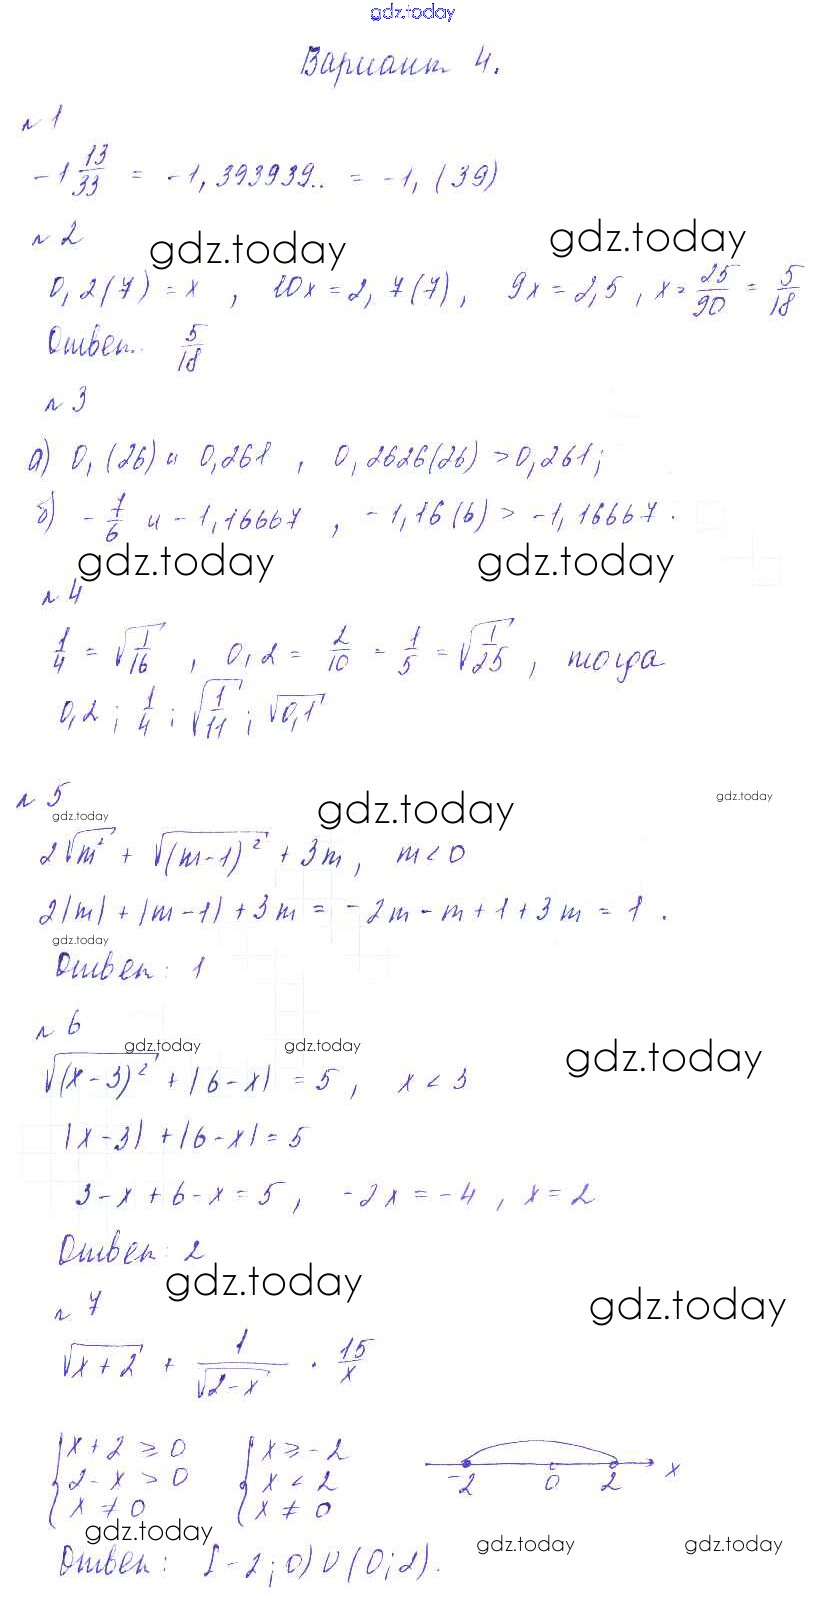 gdz.today
Вариант 4.
№1
-1 13/33 = -1,393939.. = -1,(39)
№2
gdz.today gdz.today
0,2(7) = x , 10x = 2,7(7), 9x = 2,5 , x = 25/90 = 5/18
Ответ. 5/18
№3
а) 0,(26) и 0,261 , 0,2626(26) > 0,261;
б) -7/6 и -1,16667 , -1,16(6) > -1,16667.
gdz.today gdz.today
№4
1/4 = √(1/16) , 0,2 = 2/10 = 1/5 = √(1/25) , тогда
0,2 ; 1/4 ; √(1/11) ; √0,1
№5
gdz.today gdz.today gdz.today
2√m² + √(m-1)² + 3m, m<0
2|m| + |m-1| + 3m = -2m - m + 1 + 3m = 1 .
gdz.today
Ответ: 1
№6
gdz.today gdz.today gdz.today
√(x-3)² + |6-x| = 5 , x < 3
|x-3| + |6-x| = 5
3-x + 6-x = 5 , -2x = -4 , x = 2
Ответ: 2
gdz.today gdz.today
№7
√(x+2) + 1/√(2-x) · 15/x
{ x+2 ≥ 0 { x ≥ -2
2-x > 0 x < 2
x ≠ 0 x ≠ 0
-2 0 2 x
gdz.today gdz.today gdz.today
Ответ: [-2;0)∪(0;2).